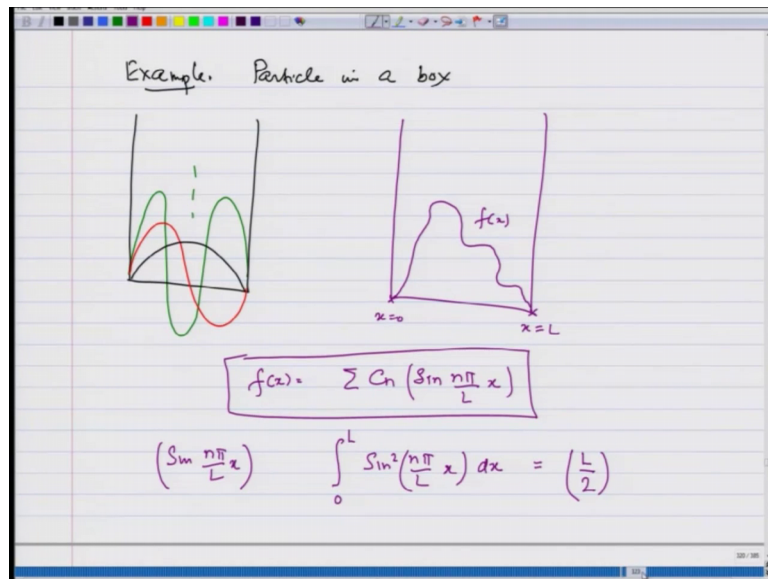 Example. Particle in a box
f(x)
x=0
x=L
f(x)= Σ Cn (Sin nπ/L x)
(Sin nπ/L x) ∫₀ᴸ Sin²(nπ/L x) dx = (L/2)